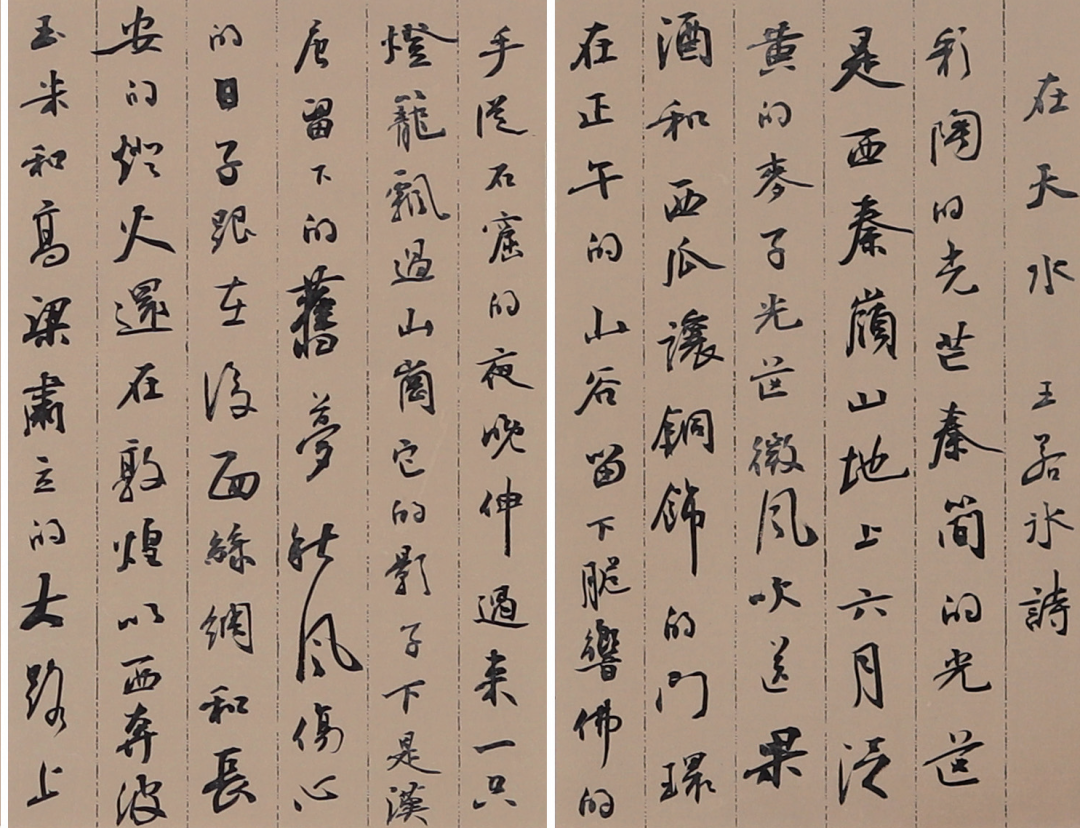 在天水 王若冰詩
彩陶的光芒秦简的光芒
是西秦嶺山地上六月泛
黄的麥子光芒微風吹送果
酒和西瓜讓銅飾的門環
在正午的山谷留下脆響佛的
手從石窟的夜晚伸過来一只
燈籠飄過山崗它的影子下是漢
唐留下的舊夢秋風傷心
的日子跟在後面絲綢和長
安的燈火還在敦煌以西奔波
玉米和高梁肅立的大路上